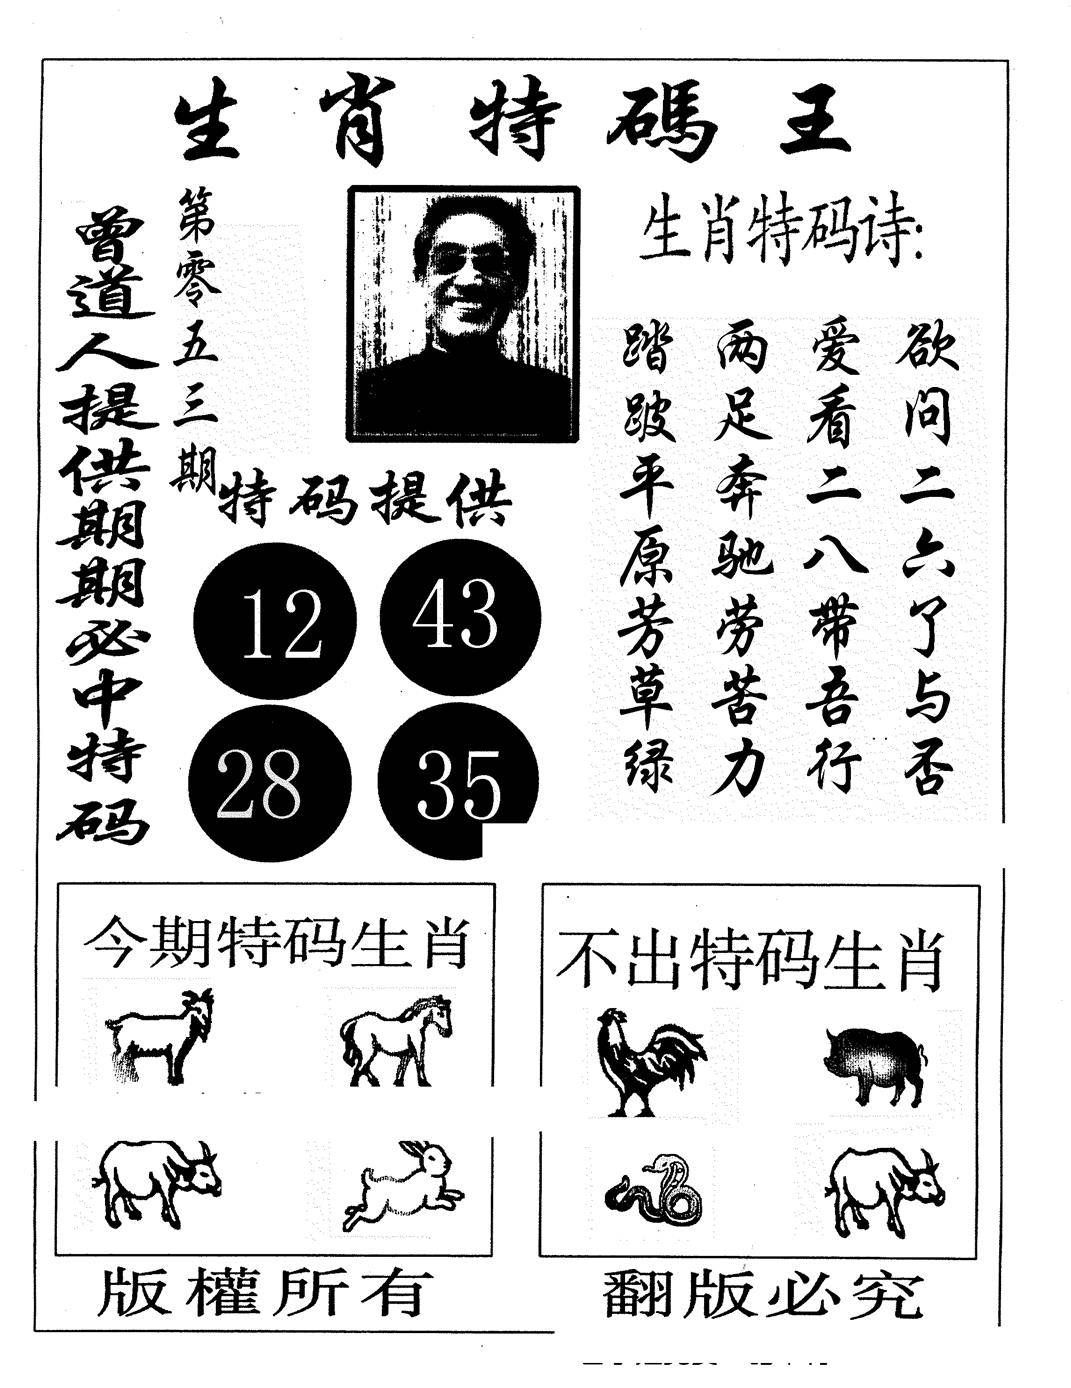 生肖特碼王
曾道人提供期期必中特码
第零五三期
生肖特码诗:
欲问二六了与否
爱看二八带吾行
两足奔驰劳苦力
踏跛平原芳草绿
特码提供
12 43
28 35
今期特码生肖
不出特码生肖
版權所有
翻版必究